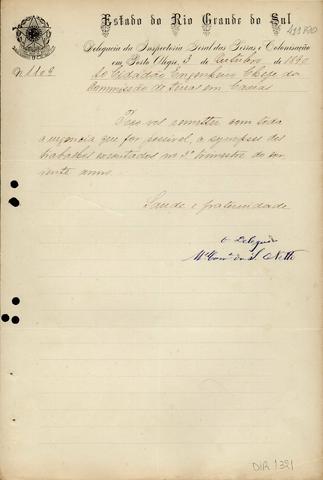 Estado do Rio Grande do Sul
Delegacia da Inspectoria Geral das Terras e Colonisação
em Porto Alegre, 3 de Outubro de 1890
Ao Cidadão Engenheiro Chefe da
Commissão de Terras em Caxias
Peço vos remetter com toda
a urgencia que for possivel, a synopse dos
trabalhos executados no 3º trimestre do cor
rente anno.
Saude e fraternidade
O Delegado
DIR 1321